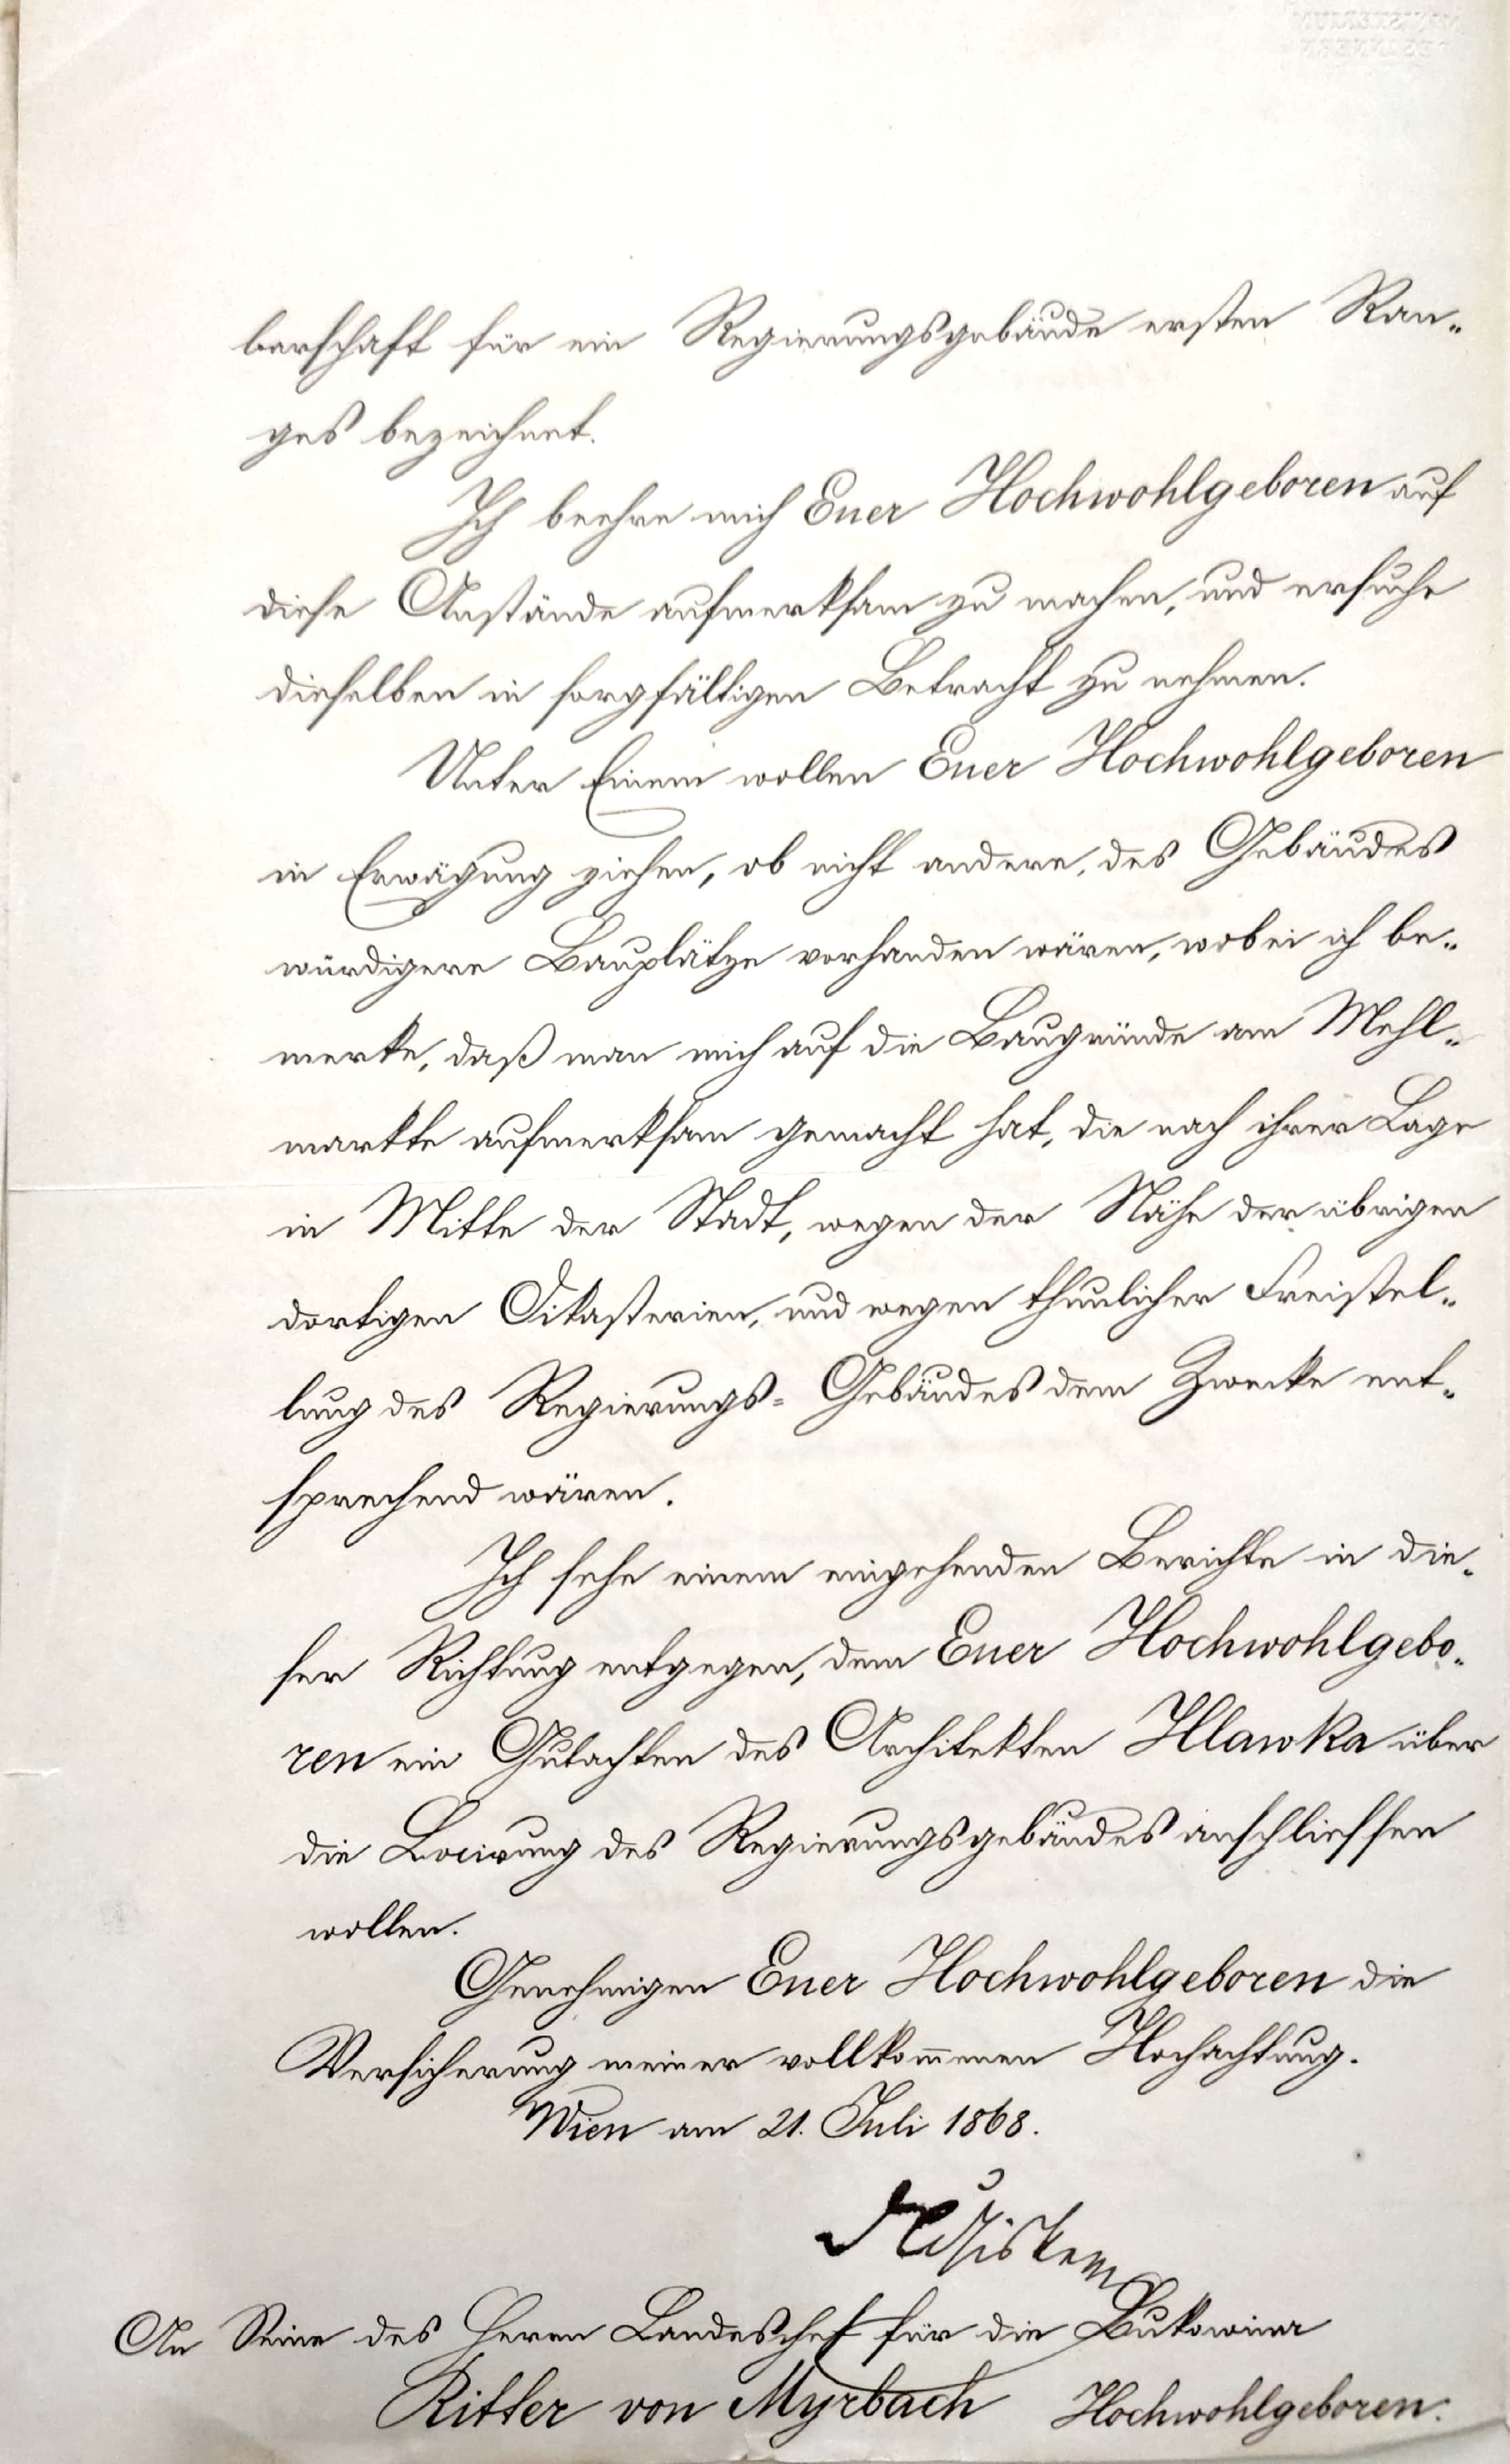 barschaft für ein Regierungsgebäude ersten Ran-
ges bezeichnet.
Ich beehre mich Euer Hochwohlgeboren auf
diese Anstände aufmerksam zu machen, und ersuche
dieselben in sorgfältigen Betracht zu nehmen.
Unter Einem wollen Euer Hochwohlgeboren
in Erwägung ziehen, ob nicht andere, des Gebäudes
würdigere Bauplätze vorhanden wären, wobei ich be-
merke, daß man mich auf die Baugründe am Mehl-
markte aufmerksam gemacht hat, die nach ihrer Lage
in Mitte der Stadt, wegen der Nähe der übrigen
dortigen Dikasterien, und wegen thunlicher Freistel-
lung des Regierungs-Gebäudes dem Zwecke ent-
sprechend wären.
Ich sehe einem eingehenden Berichte in die-
ser Richtung entgegen, dem Euer Hochwohlgebo-
ren ein Gutachten des Architekten Hlawka über
die Locirung des Regierungsgebäudes anschliessen
wollen.
Genehmigen Euer Hochwohlgeboren die
Versicherung meiner vollkommenen Hochachtung.
Wien am 21. Juli 1868.
An Seine des Herrn Landeschef für die Bukowina
Ritter von Myrbach Hochwohlgeboren.